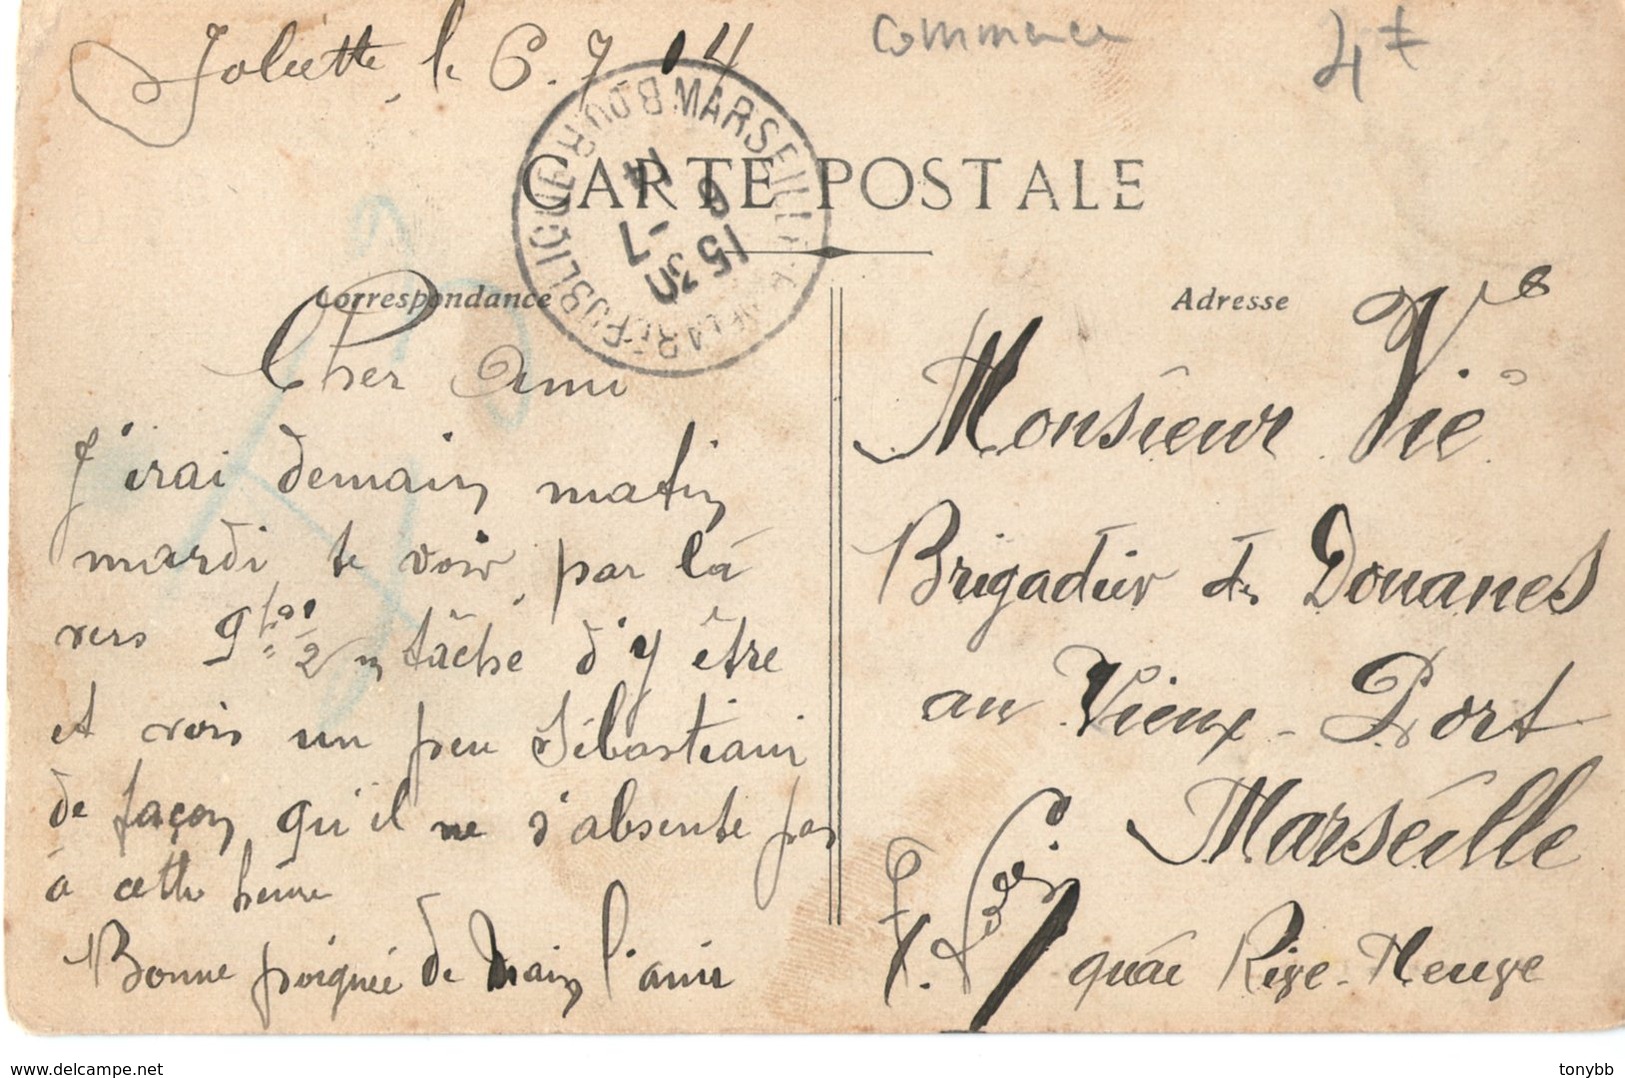 Joliette, le 6.7.14
Commerce
4 €
CARTE POSTALE
MARSEILLE
Bᴰ DU R
RÉPUBLIQUE
14
6
-7
15 30
Correspondance
Cher Ami
J'irai demain matin
mardi te voir par là
vers 9 h 1/2 tâche d'y être
et vois un peu Sébastiani
de façon qu'il ne s'absente pas
à cette heure
Bonne poignée de main l'ami
Adresse
Monsieur Vié
Brigadier des Douanes
au Vieux-Port
Marseille
7 quai Rive-Neuve
delcampe.net
tonybb